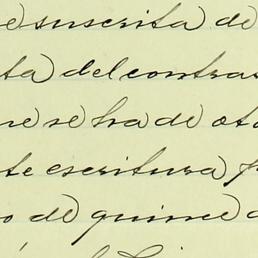 e suscrita de
ta del contras
ue se ha de oto
te escritura p
o de quince d